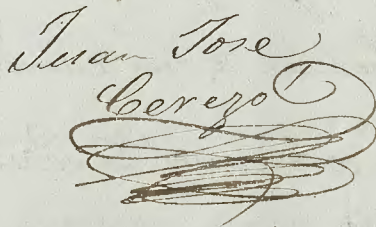 Juan Jose
Cerezo